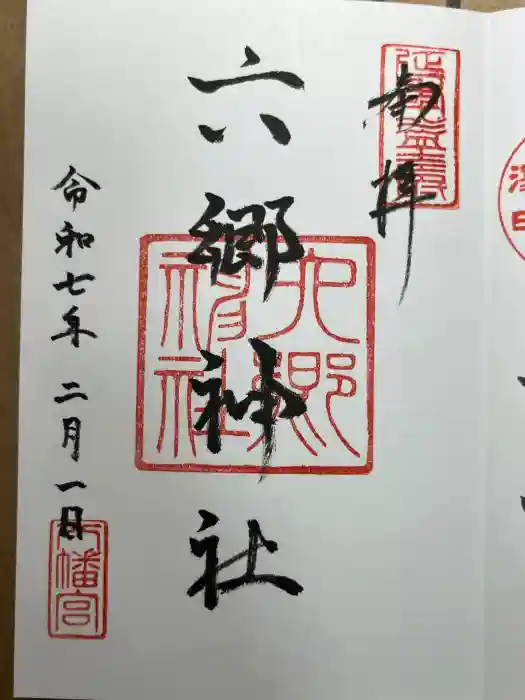 奉拝
延寿益寿
六郷神社
六郷神社
令和七年二月一日
八幡宮